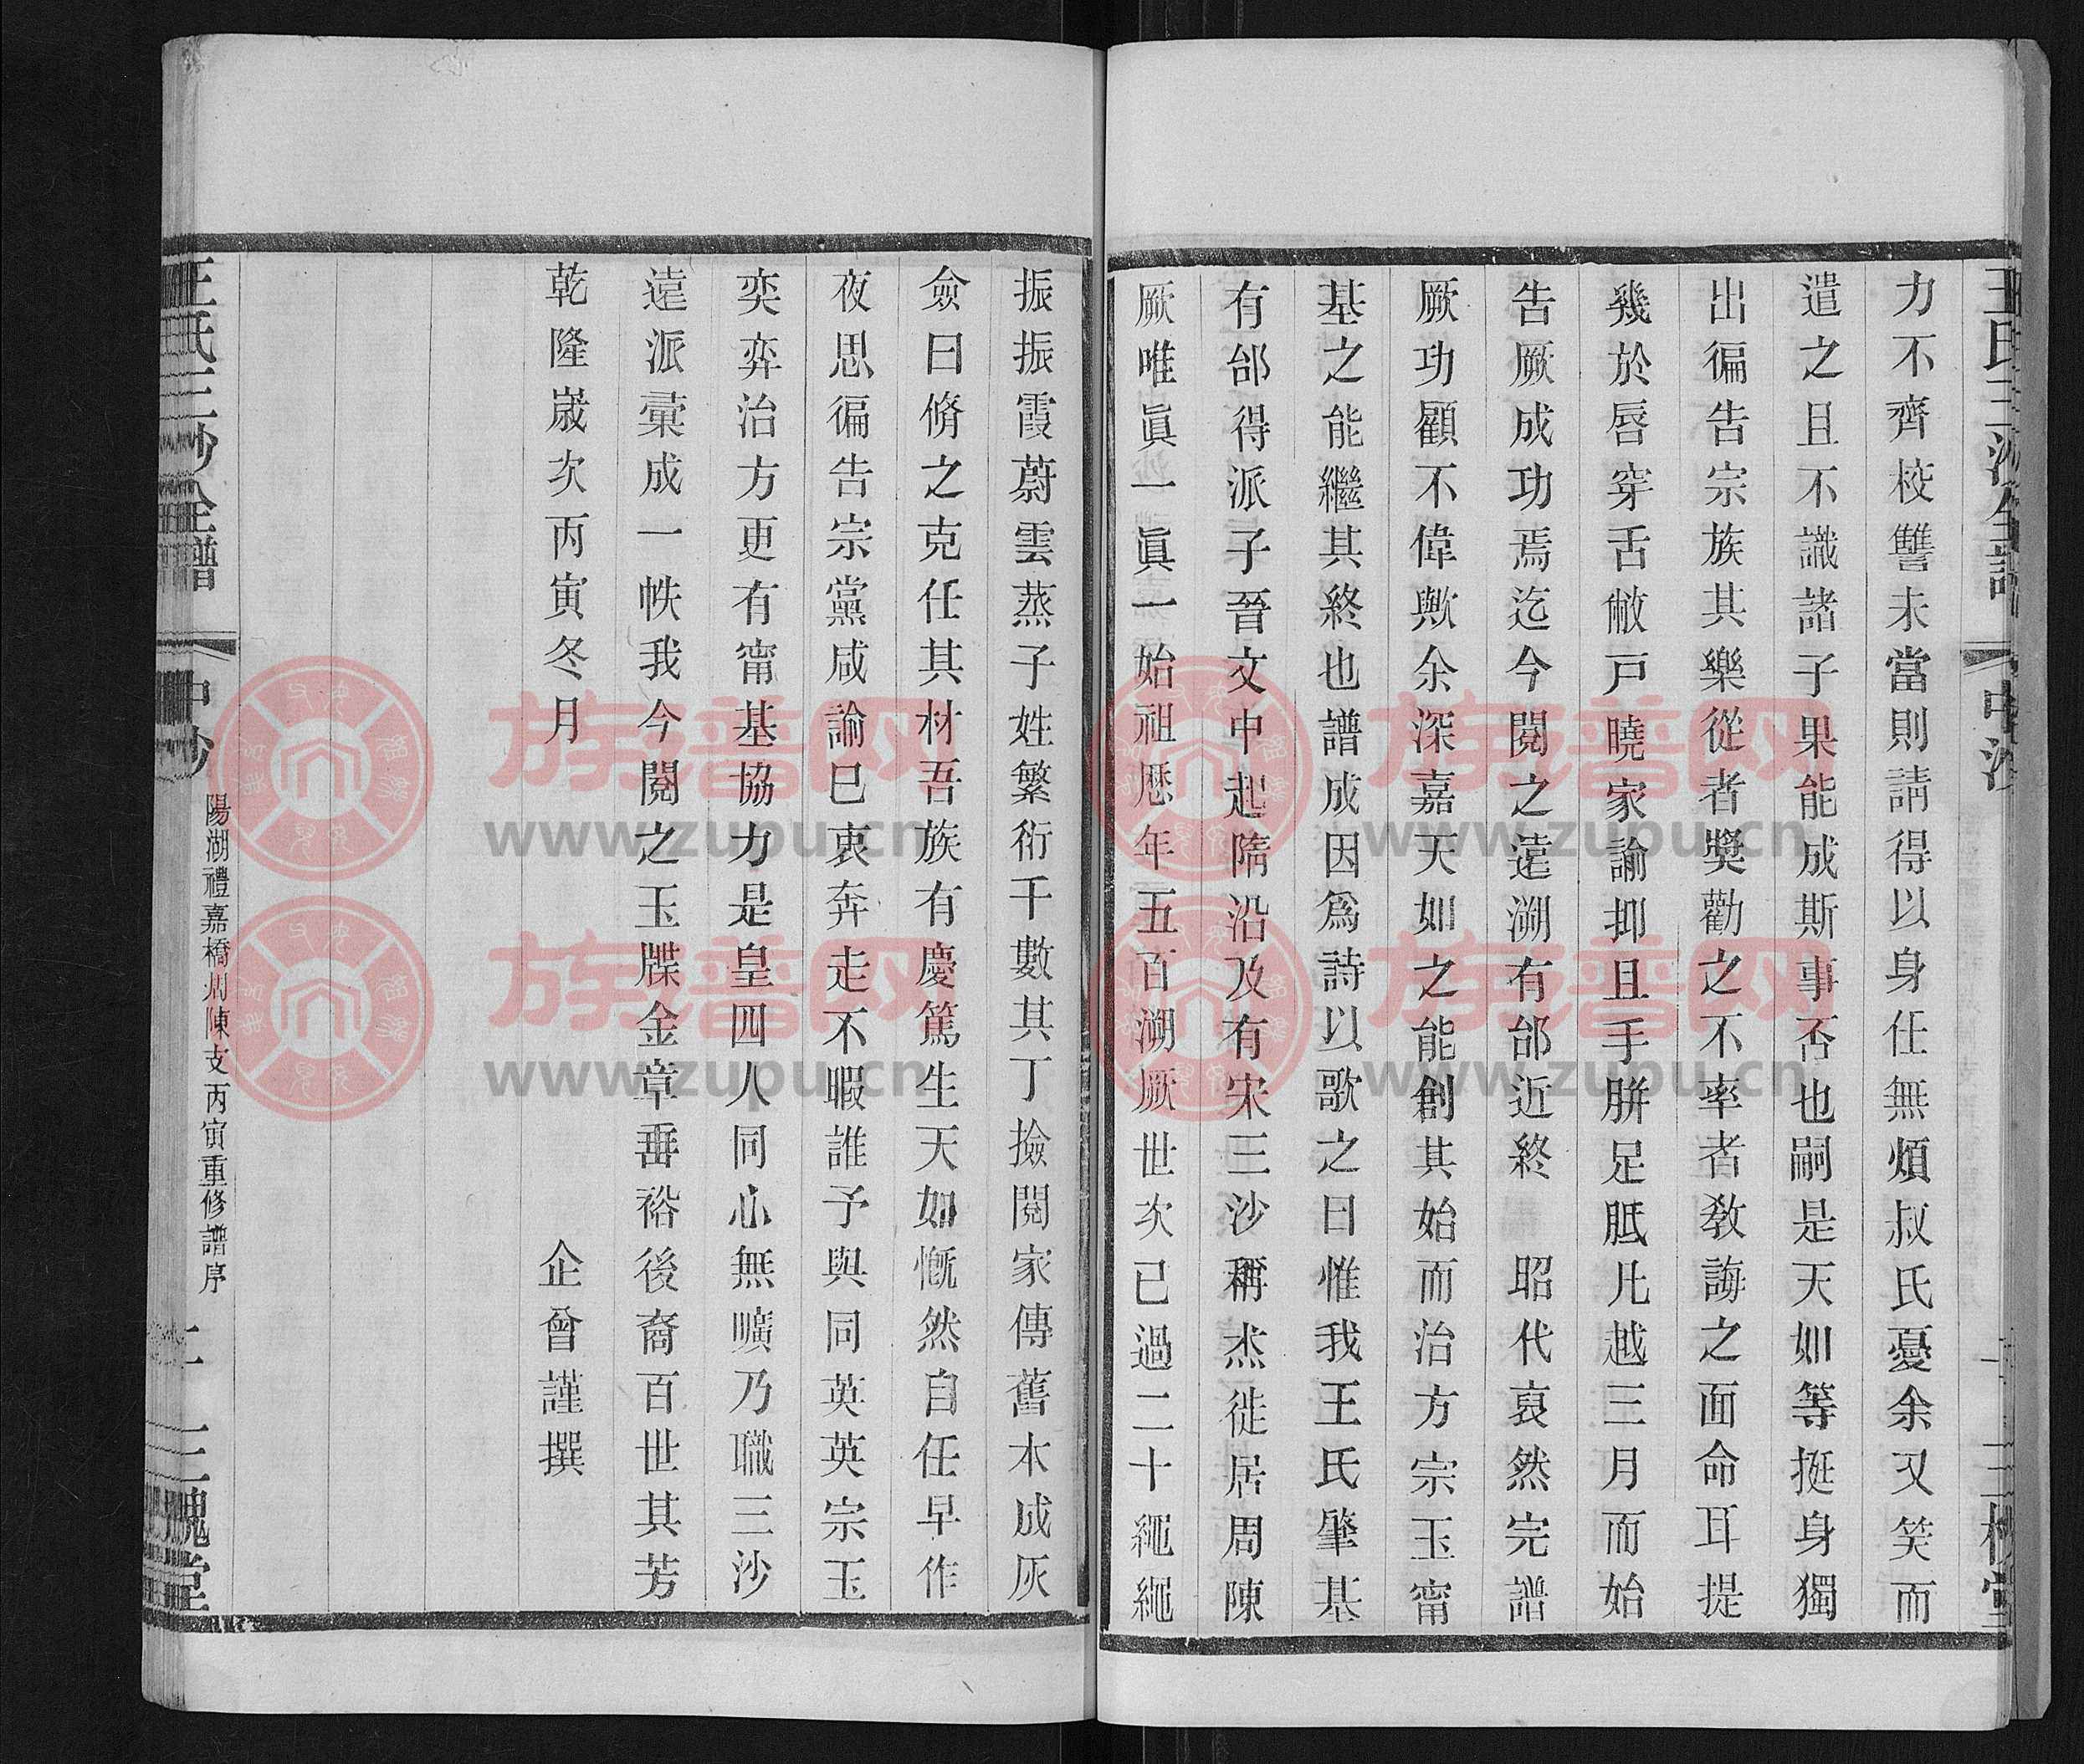 王氏三沙全譜 中沙 三槐堂
力不齊校讐未當則請得以身任無煩叔氏憂余又笑而
遣之且不識諸子果能成斯事否也嗣是天如等挺身獨
出徧告宗族其樂從者獎勸之不率者教誨之面命耳提
幾於唇穿舌敝戸曉家諭抑且手胼足胝凡越三月而始
告厥成功焉迄今閱之遠溯有邰近終 昭代裒然完譜
厥功顧不偉歟余深嘉天如之能創其始而治方宗玉甯
基之能繼其終也譜成因爲詩以歌之曰惟我王氏肇基
有邰得派子晉文中起隋沿及有宋三沙稱杰徙居周陳
厥唯眞一眞一始祖歷年五百溯厥世次已過二十繩繩
振振霞蔚雲蒸子姓繁衍千數其丁撿閱家傳舊本成灰
僉曰脩之克任其材吾族有慶篤生天如慨然自任早作
夜思徧告宗黨咸諭已衷奔走不暇誰予與同英英宗玉
奕奕治方更有甯基協力是皇四人同心無曠乃職三沙
遠派彙成一帙我今閱之玉牒金章垂裕後裔百世其芳
乾隆歲次丙寅冬月 企曾謹撰
王氏三沙全譜 中沙 陽湖禮嘉橋周陳支丙寅重修譜序 三槐堂
族譜网
www.zupu.cn
族譜网
www.zupu.cn
族譜网
www.zupu.cn
族譜网
www.zupu.cn